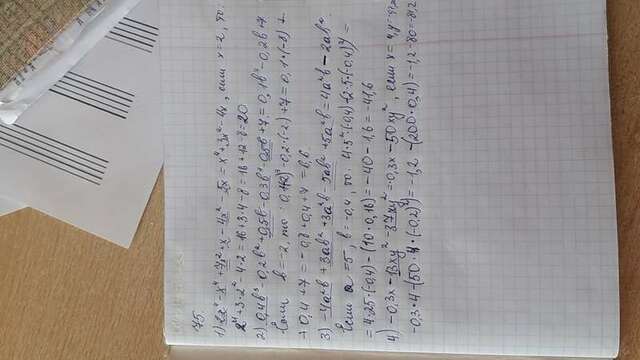 75.
1) 2x⁴ - x⁴ + 7x² + x - 4x² - 5x = x⁴ + 3x² - 4x, если x = 2, то:
2⁴ + 3·2² - 4·2 = 16 + 3·4 - 8 = 16 + 12 - 8 = 20
2) 0,4b³ - 0,2b² + 0,5b - 0,3b³ - 0,5b + 7 = 0,1b³ - 0,2b + 7
Если b = -2, то: 0,1·(-2)³ - 0,2·(-2) + 7 = 0,1·(-8) +
+ 0,4 + 7 = -0,8 + 0,4 + 7 = 6,6.
3) -4a²b + 3ab² + 3a²b - 5ab² + 5a²b = 4a²b - 2ab².
Если a = 5, b = -0,4, то: 4·5²·(-0,4) - (2·5·(-0,4)²) =
= 4·25·(-0,4) - (10·0,16) = -40 - 1,6 = -41,6
4) -0,3x - 13xy² - 37xy² = -0,3x - 50xy², если x = 4, y =
-0,3·4 - (50·4·(-0,2)²) = -1,2 - (200·0,4) = -1,2 - 80 = -81,2